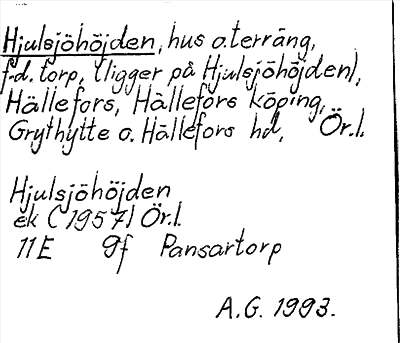 Hjulsjöhöjden, hus o. terräng,
f.d. torp, (ligger på Hjulsjöhöjden),
Hällefors, Hällefors köping,
Grythytte o. Hällefors hd, Ör.l.
Hjulsjöhöjden
ek (1957) Ör.l.
11E 9f Pansartorp
A.G. 1993.